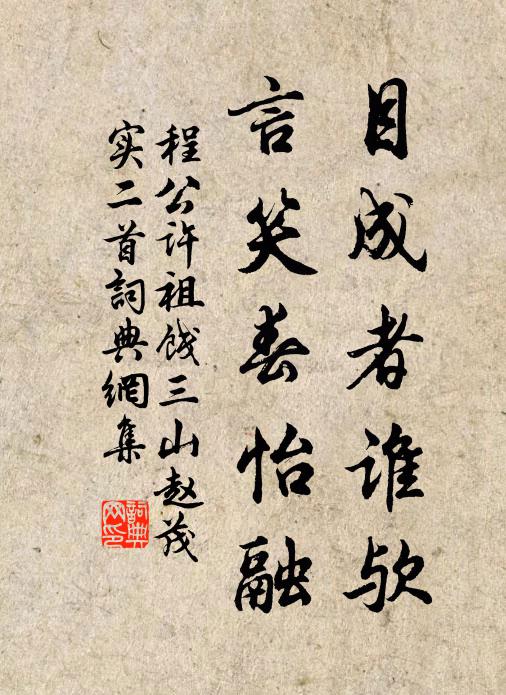 目成者谁欤
言笑春怡融
程公许祖饯三山赵茂
实二首詞典網集
詞典
网印